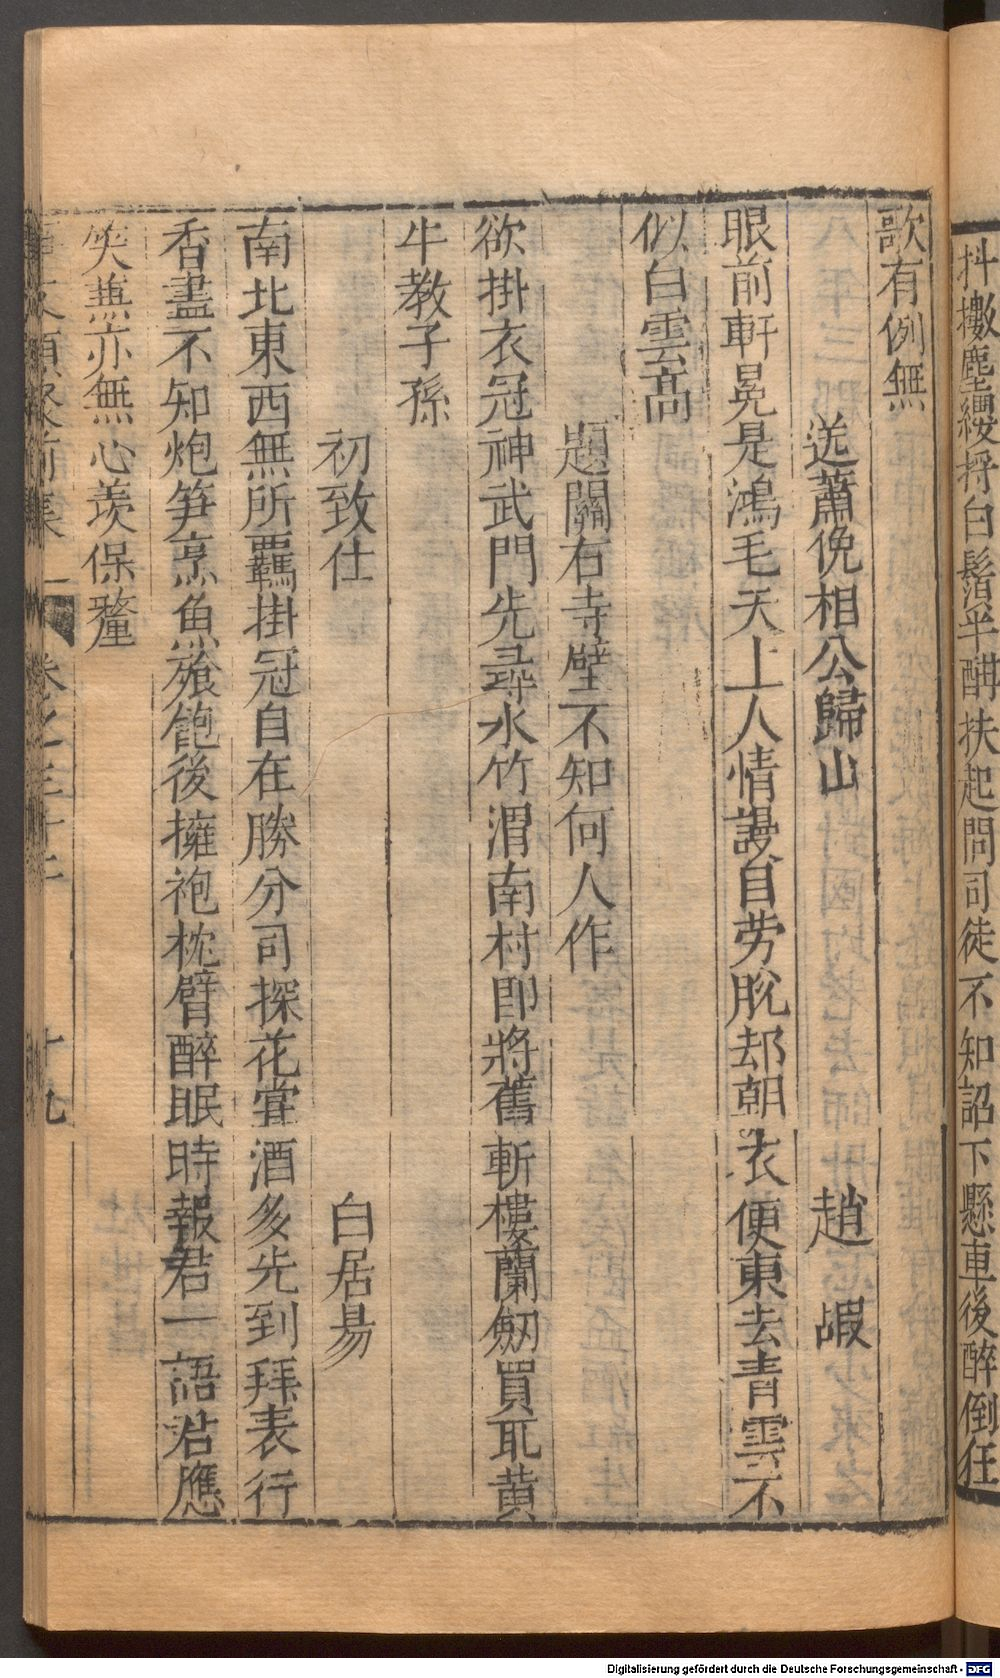 抖擻塵纓捋白鬚半酣扶起問司徒不知詔下懸車後醉倒狂
歌有例無
送蕭俛相公歸山 趙嘏
眼前軒冕是鴻毛天上人情謾自勞脫却朝衣便東去青雲不
似白雲高
題關右寺壁不知何人作
欲掛衣冠神武門先尋水竹渭南村即將舊斬樓蘭劒買取黄
牛教子孫
初致仕 白居易
南北東西無所羈掛冠自在勝分司探花嘗酒多先到拜表行
香盡不知炮笋烹魚飱飽後擁袍枕臂醉眠時報君一語君應
笑兼亦無心羡保釐
事文類聚前集 卷之三十二 十九
Digitalisierung gefördert durch die Deutsche Forschungsgemeinschaft - DFG